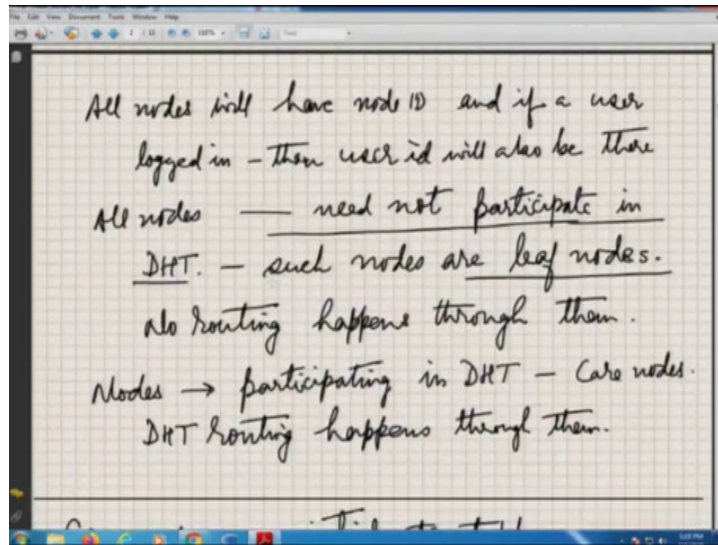 File Edit View Document Tools Window Help
2 / 11
All nodes will have node ID and if a user
logged in - then user id will also be there
All nodes — need not participate in
DHT. - such nodes are leaf nodes.
No routing happens through them.
Nodes → participating in DHT - Core nodes.
DHT routing happens through them.